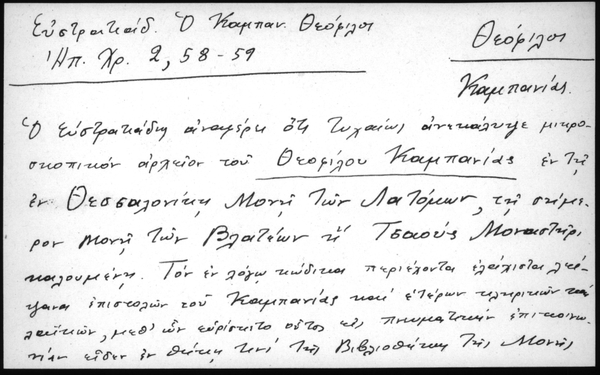 Εὐστρατιάδ. Ὁ Καμπαν. Θεόφιλος
Ἠπ. Χρ. 2, 58-59
Θεόφιλος
Καμπανίας.
Ὁ Εὐστρατιάδης ἀναφέρει ὅτι τυχαίως ἀνεκάλυψε μικρο-
σκοπικὸν ἀρχεῖον τοῦ Θεοφίλου Καμπανίας ἐν τῇ
ἐν Θεσσαλονίκῃ Μονῇ τῶν Λατόμων, τῇ σήμε-
ρον Μονῇ τῶν Βλατέων ἢ Τσαοὺς Μοναστήρι
καλουμένῃ. Τὸν ἐν λόγῳ κώδικα περιέχοντα ἐλάχιστα λεί-
ψανα ἐπιστολῶν τοῦ Καμπανίας καὶ ἑτέρων κληρικῶν καὶ
λαϊκῶν, μεθ' ὧν εὑρίσκετο οὗτος εἰς πνευματικὴν ἐπικοινω-
νίαν εἶδεν ἐν θήκῃ τινὶ τῆς Βιβλιοθήκης τῆς Μονῆς